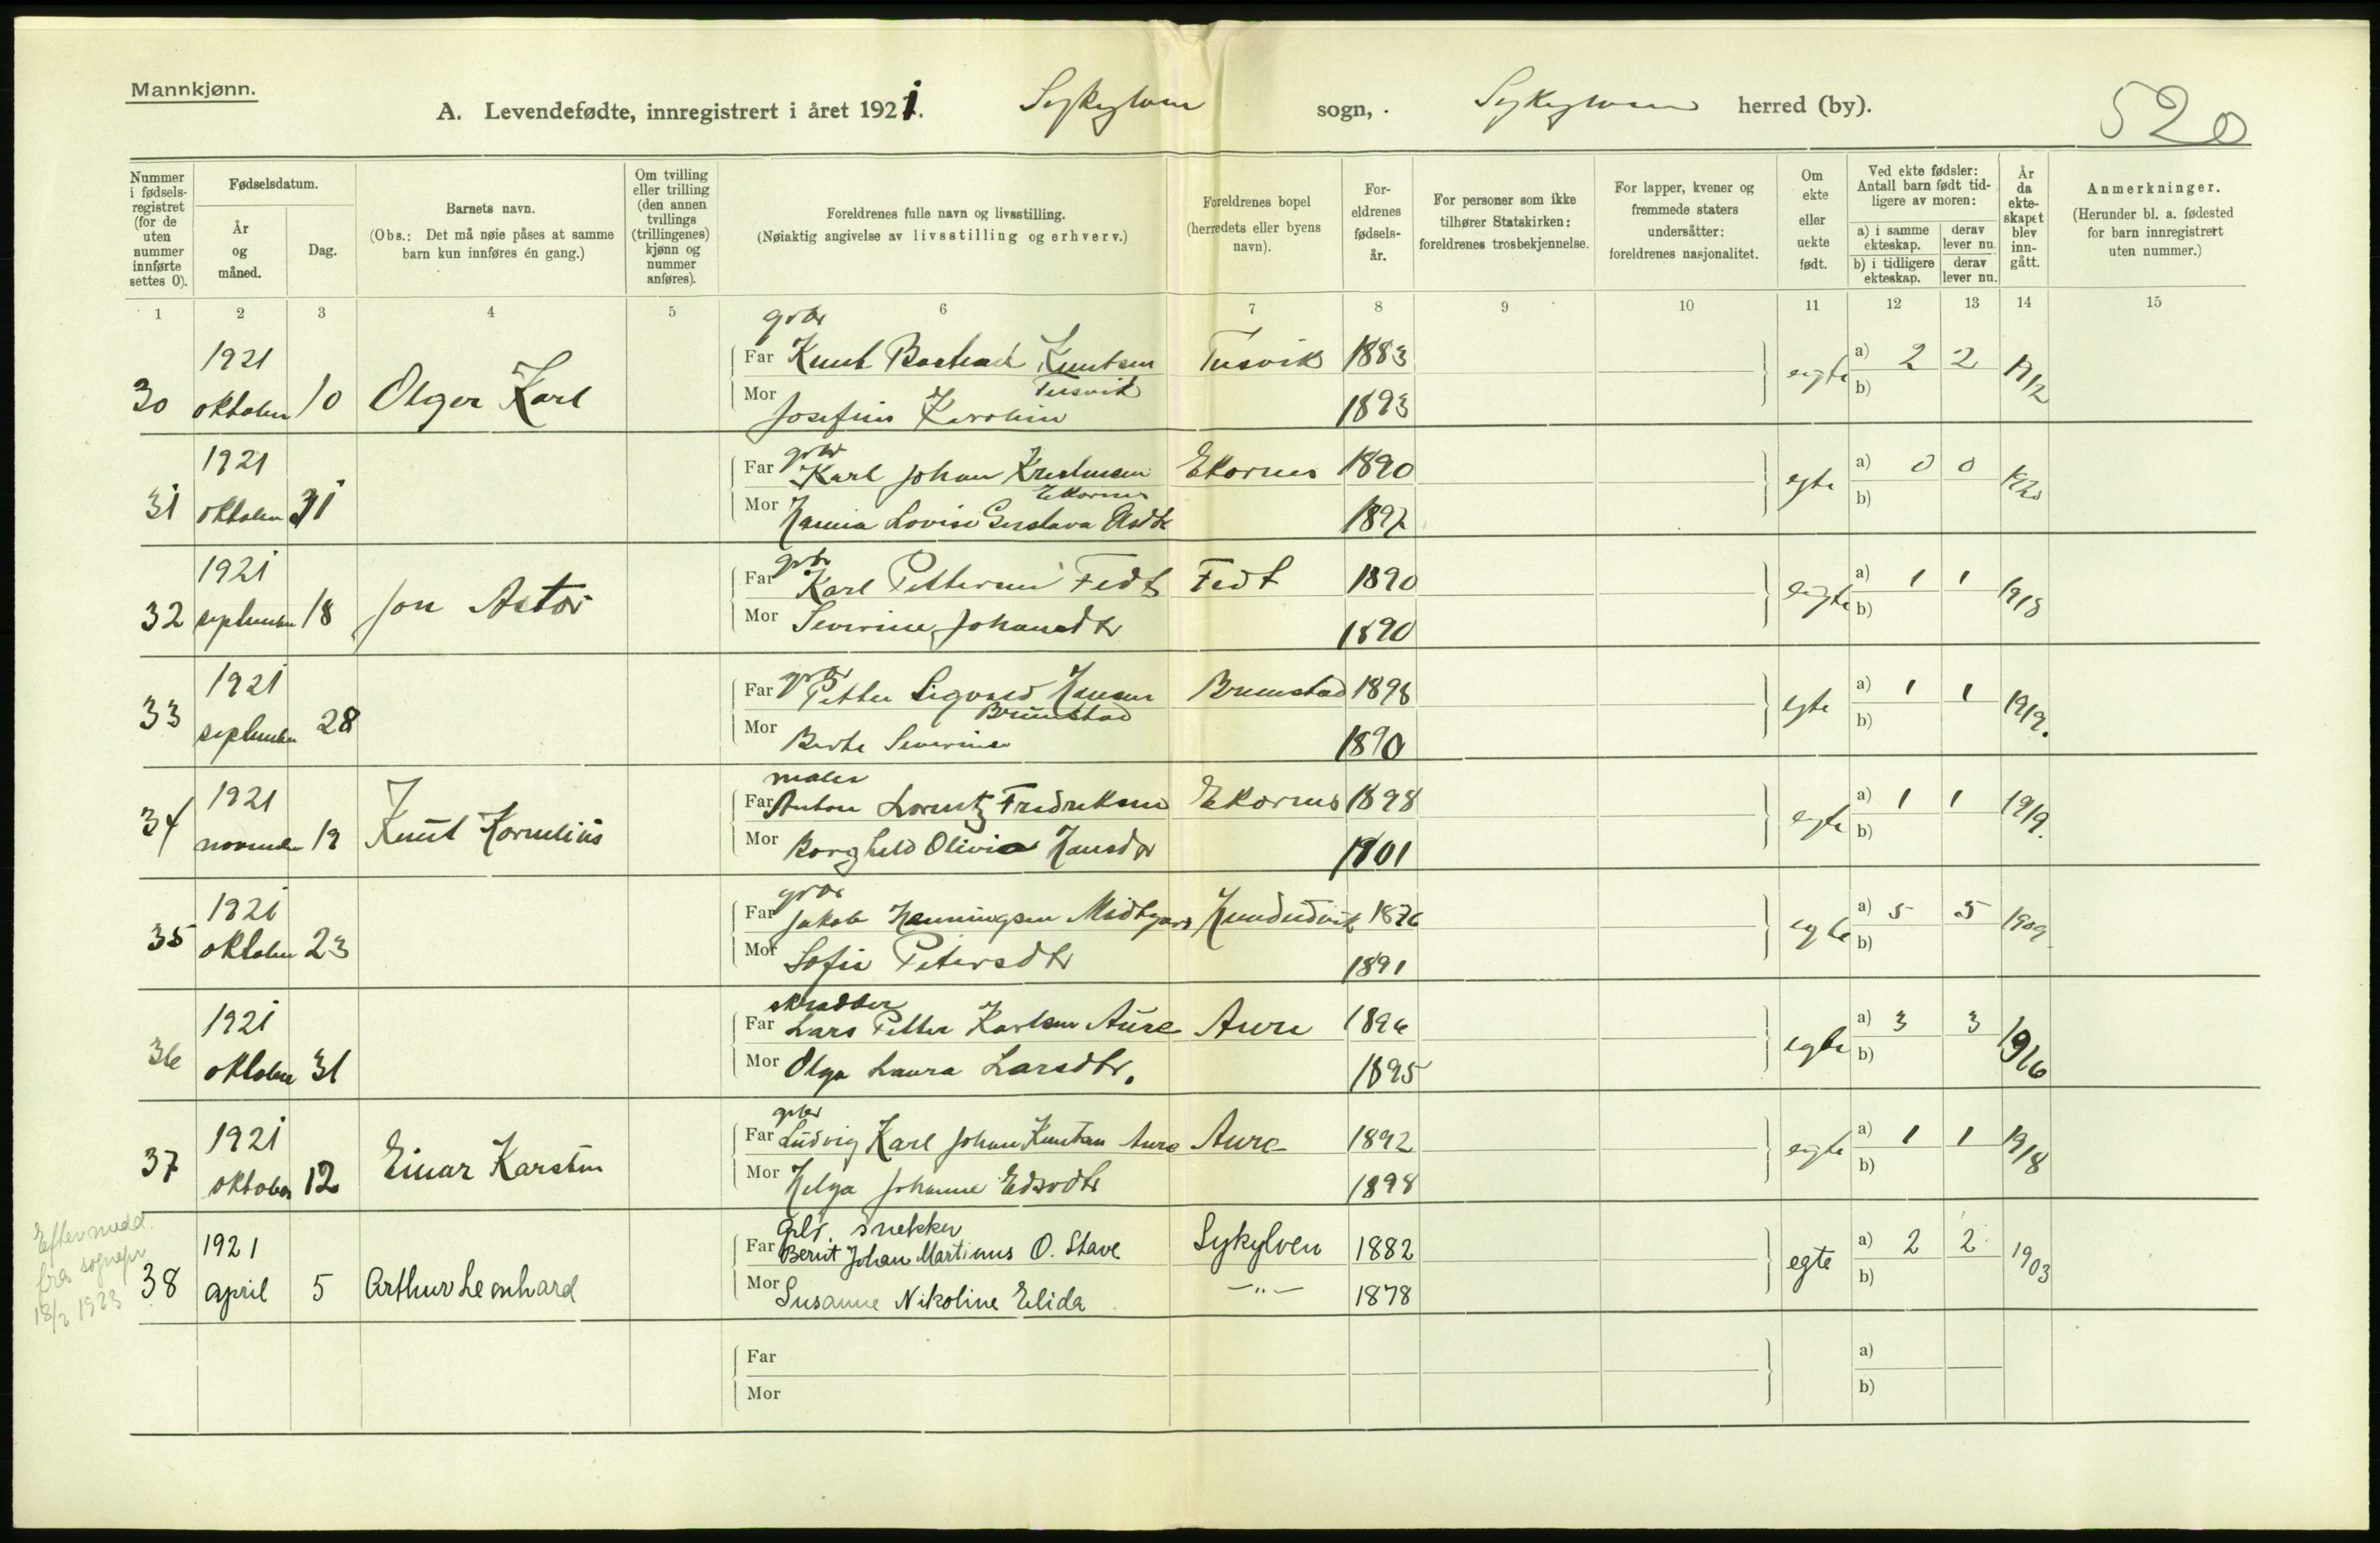 Mannkjønn.
A. Levendefødte, innregistrert i året 1921. Sykylven sogn, . Sykylven herred (by).
520
Nummer i fødsels-registret (for de uten nummer innførte settes 0).
Fødselsdatum.
År og måned.
Dag.
Barnets navn.
(Obs.: Det må nøie påses at samme barn kun innføres én gang.)
Om tvilling eller trilling (den annen tvillings (trillingenes) kjønn og nummer anføres).
Foreldrenes fulle navn og livsstilling.
(Nøiaktig angivelse av livsstilling og erhverv.)
Foreldrenes bopel (herredets eller byens navn).
For-eldrenes fødsels-år.
For personer som ikke tilhører Statskirken: foreldrenes trosbekjennelse.
For lapper, kvener og fremmede staters undersåtter: foreldrenes nasjonalitet.
Om ekte eller uekte født.
Ved ekte fødsler: Antall barn født tid-ligere av moren:
a) i samme ekteskap.
derav lever nu.
b) i tidligere ekteskap.
derav lever nu.
År da ekte-skapet blev inn-gått.
Anmerkninger.
(Herunder bl. a. fødested for barn innregistrert uten nummer.)
1 2 3 4 5 6 7 8 9 10 11 12 13 14 15
gbr
1921 Far Knut Bastian Knutsen Tusvik 1883 a) 2 2 1912
30 oktober 10 Olger Karl Tusvik egte b)
Mor Josefine Karoline 1893
gbr
1921 Far Karl Johan Kristinsen Ekornes 1890 a) 0 0
31 oktober 31 Ekornes egte b)
Mor Hanna Lovise Gustava 1892
gbr
1921 Far Karl Pettersen Fedt Fedt 1890 a) 1 1 1918
32 september 18 Jon Astor egte b)
Mor Severine Johansdtr 1890
gbr
1921 Far Petter Sigvard Hansen Brunstad 1898 a) 1 1 1919.
33 september 28 Brunstad egte b)
Mor Berte Severine 1890
maler
1921 Far Anton Lorentz Fredriksen Ekornes 1898 a) 1 1 1919.
34 november 19 Knut Kornelius egte b)
Mor Borghild Olivia Hansdtr 1901
gbr
1921 Far Jakob Henningsen Midtgard Hundeidvik 1876 a) 5 5 1909
35 oktober 23 egte b)
Mor Sofie Petersdtr 1891
skradder
1921 Far Lars Petter Karlsen Aure Aure 1896 a) 3 3 1916
36 oktober 31 egte b)
Mor Olga Laura Larsdtr. 1895
gbr
1921 Far Ludvig Karl Johan Knutsen Aure Aure 1892 a) 1 1 1918
37 oktober 12 Einar Karsten egte b)
Mor Helga Johanne 1898
Efter medd. fra sognepr 18/2 1923
snekker
1921 Far Bernt Johan Martinus O. Stave Sykylven 1882 a) 2 2 1903
38 april 5 Arthur Leonhard egte b)
Mor Susanne Nikoline Elida –"– 1878
Far a)
Mor b)